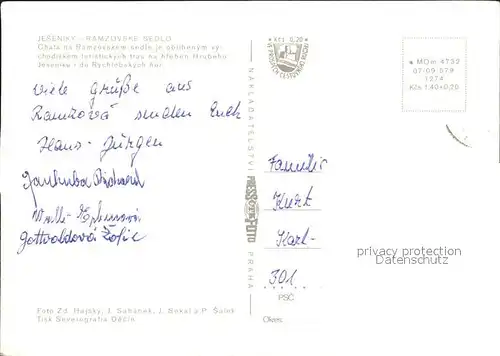 JESENÍKY - RAMZOVSKÉ SEDLO
Chata na Ramzovském sedle je oblíbeným vý-
chodiskem turistických tras na hřeben Hrubého
Jeseníku i do Rychlebských hor.
Kčs 0,20
viele Grüße aus
Ramzová senden Euch
Hans-Jürgen
Gottwaldová Žofie
Foto Zd. Hajský, J. Sabánek, J. Bokal a P. Šolek
Tisk Severografia Děčín
NAKLADATELSTVÍ
PRESSFOTO
PRAHA
MOm 4732
07/09 579
1274
Kčs 1,40+0,20
Familie
Kurt
Karl-
301
PSČ
Okres
privacy protection
Datenschutz